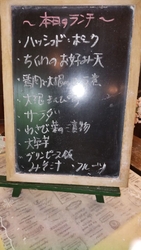 ～本日のランチ～
・ハッシュド・ポーク
・ちくわのお好み天
・大根
・サラダ
・わさび菜の漬物
・大学芋
・グリンピース飯
・みそ汁 ・フルーツ